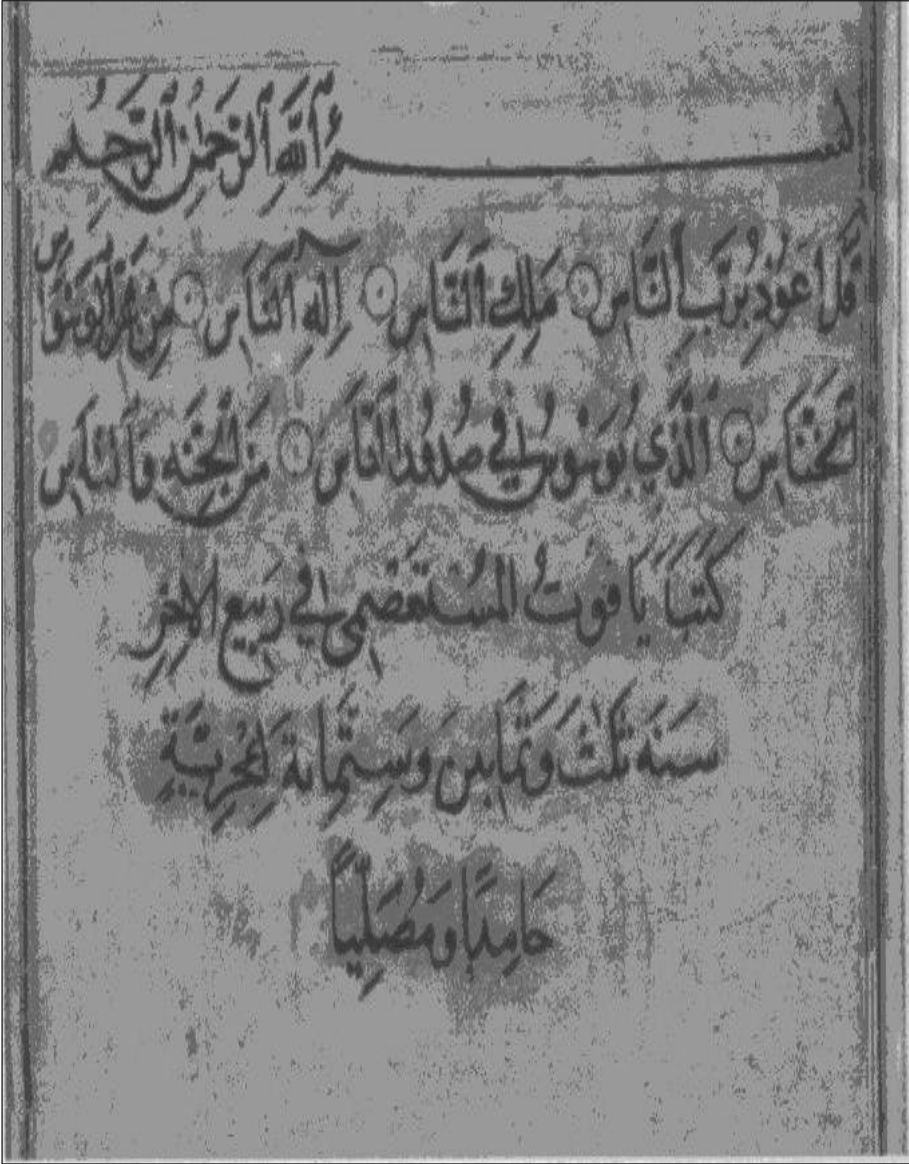 بسم ٱللَّهِ ٱلرَّحْمٰنِ ٱلرَّحِيمِ
قُلْ أَعُوذُ بِرَبِّ ٱلنَّاسِ مَلِكِ ٱلنَّاسِ إِلٰهِ ٱلنَّاسِ مِن شَرِّ ٱلْوَسْوَاسِ
ٱلْخَنَّاسِ ٱلَّذِي يُوَسْوِسُ فِي صُدُورِ ٱلنَّاسِ مِنَ ٱلْجِنَّةِ وَٱلنَّاسِ
كَتَبَ يَاقُوتُ المُسْتَعْصِمِي فِي رَبِيعِ الآخِرِ
سَنَةَ ثَلٰثٍ وَثَمَانِينَ وَسِتِّمِائَةٍ هِجْرِيَّةٍ
حَامِدًا وَمُصَلِّيًا